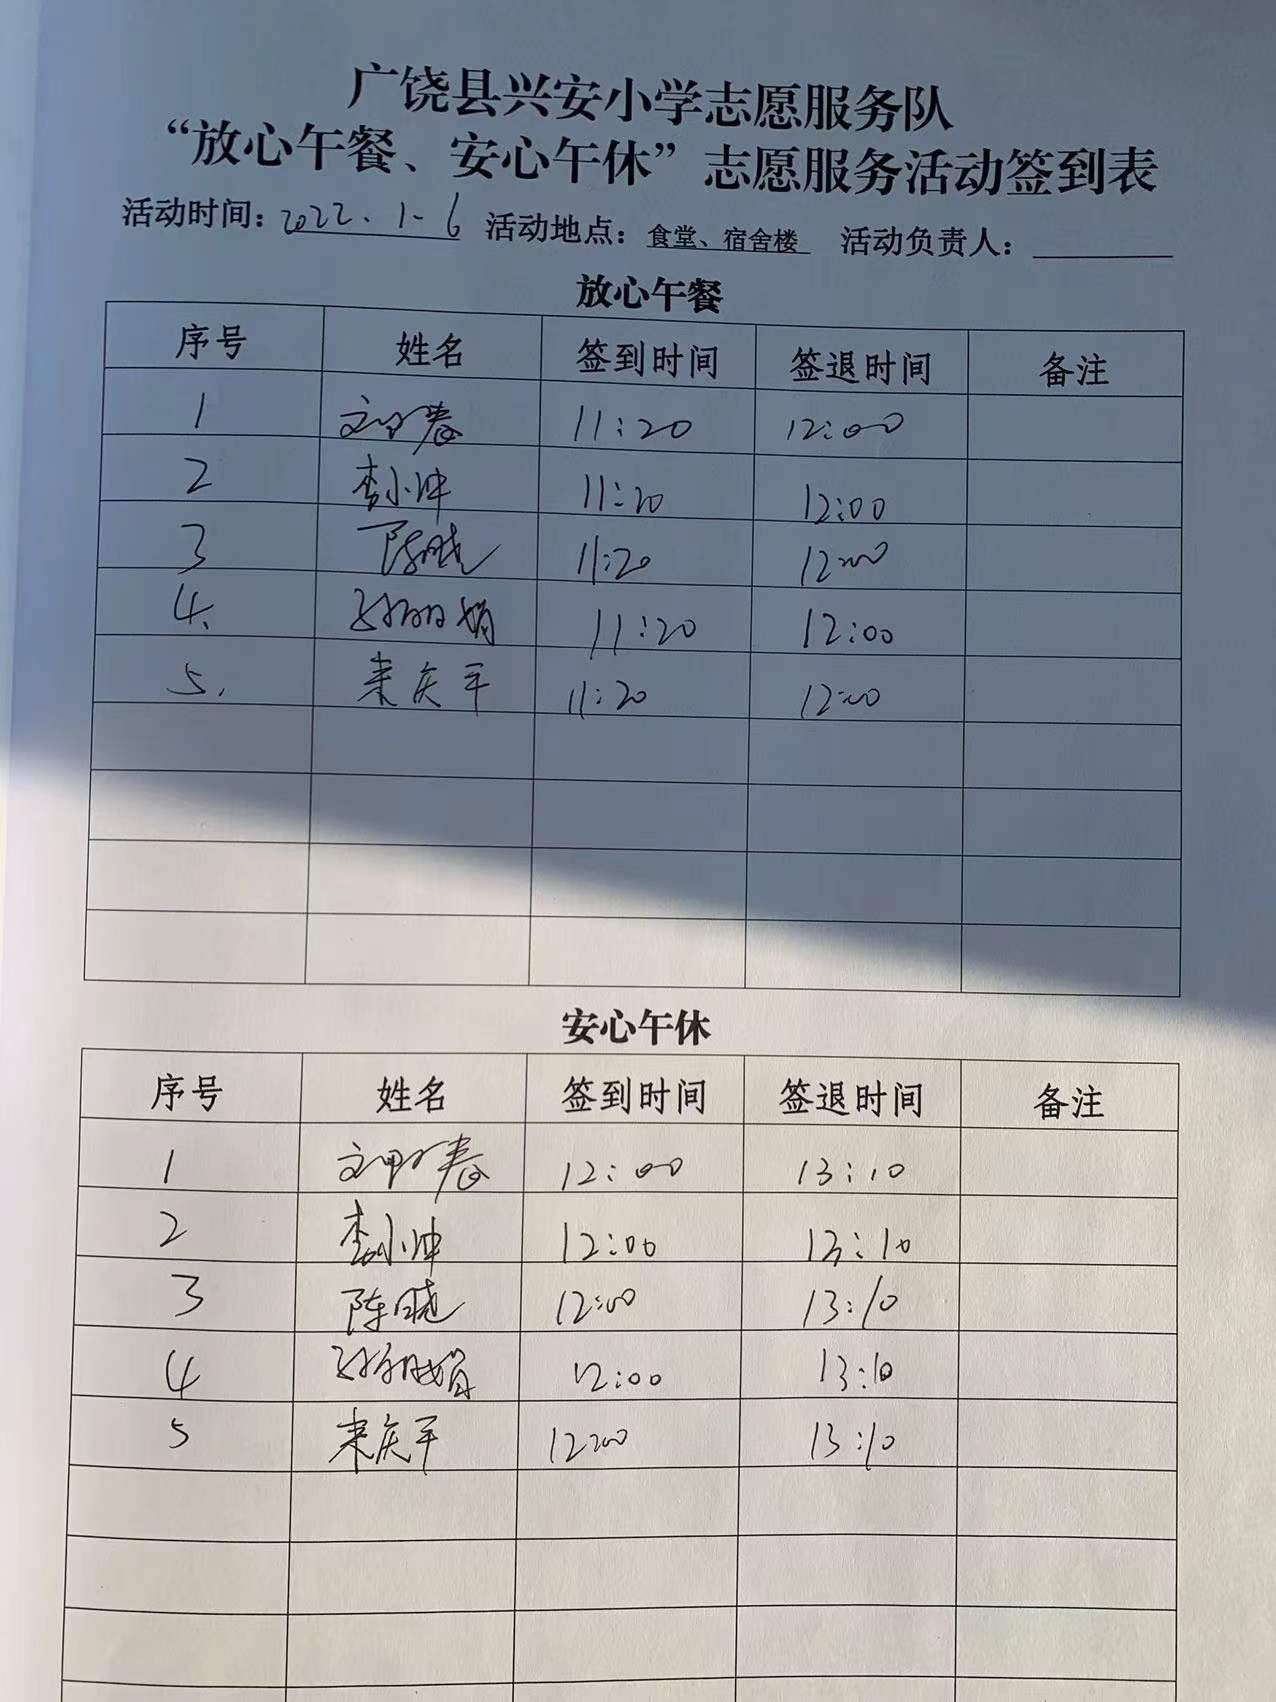 广饶县兴安小学志愿服务队
“放心午餐、安心午休”志愿服务活动签到表
活动时间：2022.1.6 活动地点：食堂、宿舍楼 活动负责人：
放心午餐
序号 姓名 签到时间 签退时间 备注
1 11:20 12:00
2 李小冲 11:20 12:00
3 陈晓 11:20 12:00
4. 11:20 12:00
5. 来庆平 11:20 12:00
安心午休
序号 姓名 签到时间 签退时间 备注
1 12:00 13:10
2 李小冲 12:00 13:10
3 陈晓 12:00 13:10
4 12:00 13:10
5 来庆平 12:00 13:10